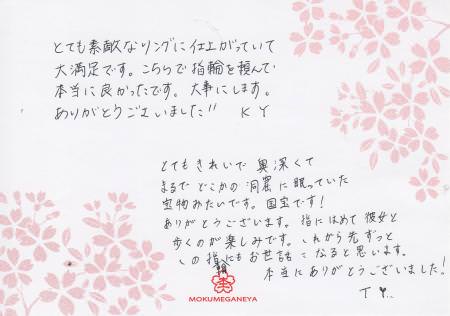 とても素敵なリングに仕上がっていて
大満足です。こちらで指輪を頼んで
本当に良かったです。大事にします。
ありがとうございました!! K Y
とてもきれいで 奥深くて
まるで どこかの 洞窟に眠っていた
宝物みたいです。国宝です!
ありがとうございます。指にはめて 彼女と
歩くのが楽しみです。これから先 ずっと
この指輪にもお世話になると思います。
本当にありがとうございました!
T Y.
MOKUMEGANEYA